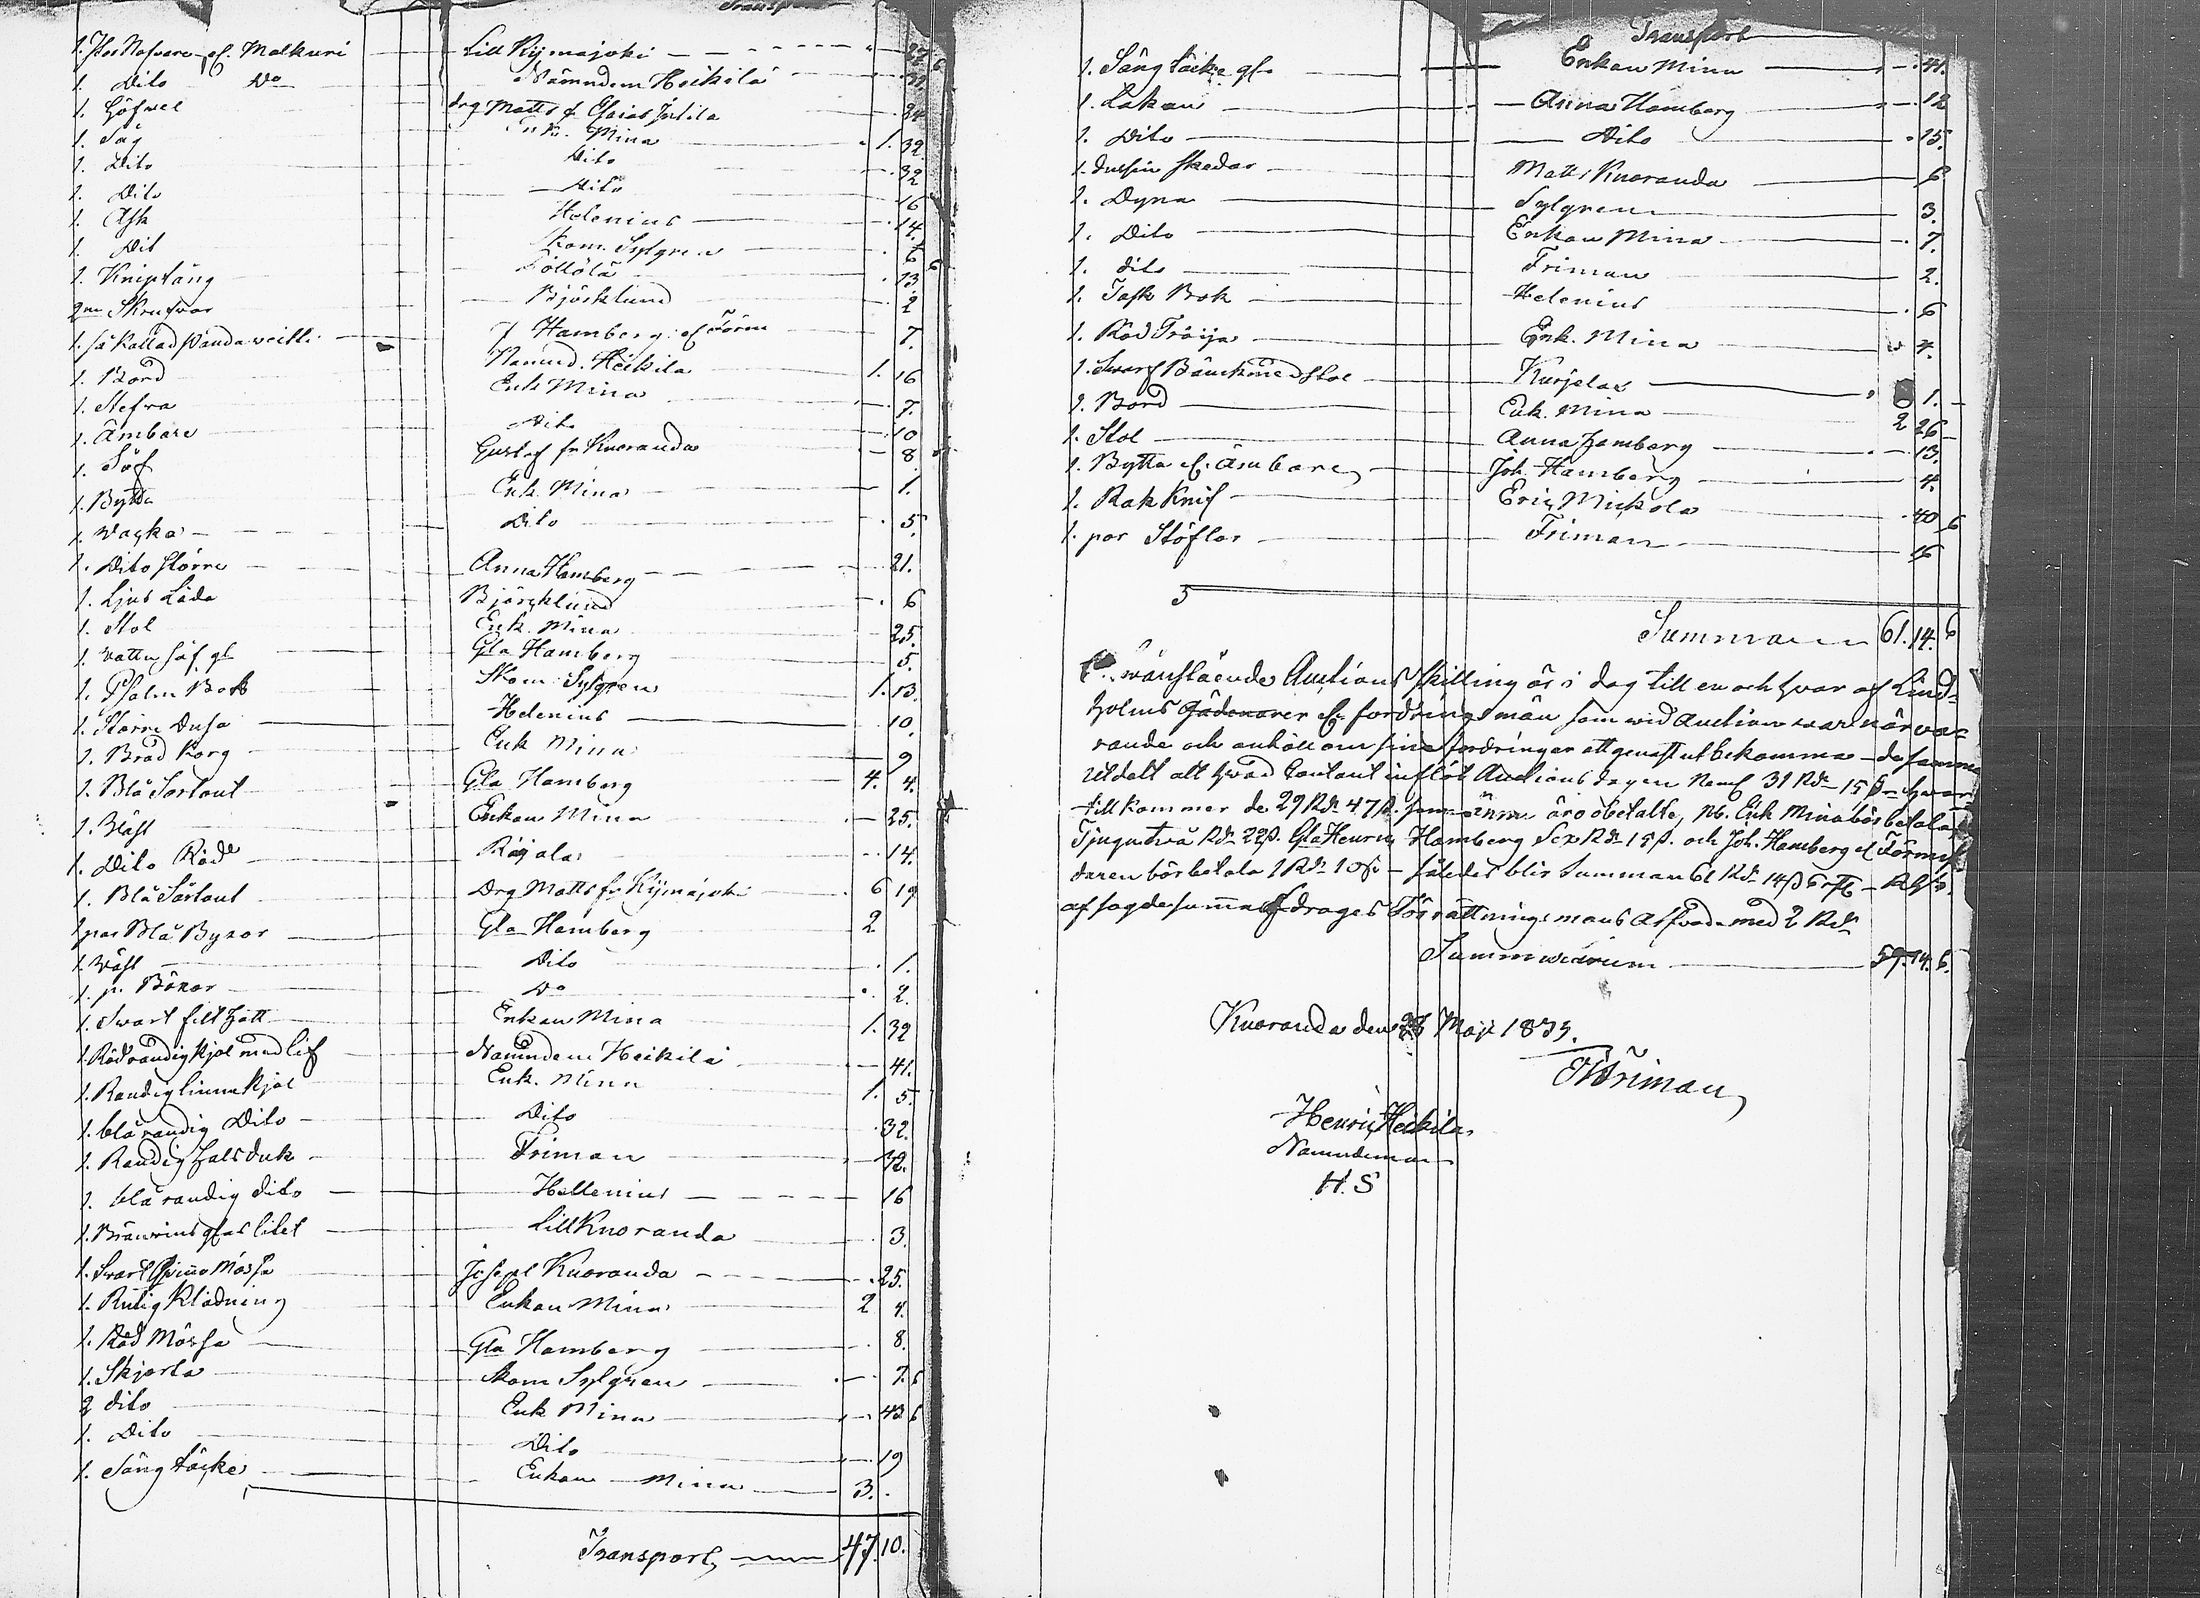 Transport
1. Stor Nafvare el. Malkuri Lill Kijmajoki 22 6
1. Dito Do Nämndem Heikilä
1. Höfvel drg Matts f. 24
1. Såg Enk. Mina 1. 32
1. Dito Dito 32
1. Dito Dito 16
1. Ask Helenius 14.
1. Dit Skom. Sylgren 6
1. Kniptång 13 6
2ne Skrufvar Björklund 2
1. så Kallad Hamberg 7.
1. Bord Nämnd. Heikila 1. 16
1. Stefva Enk Mina 7.
1. Ämbare Dito 10
1. Så Gustaf fr Kuoranda 8
1. Bytta Enk. Mina 1.
1. Vagka Dito 5
1. Dito större Anna Hamberg 21.
1. Ljus Låda Björcklund 6
1. Stol Enk. Mina 25.
1. Vattu så gl Gla Hamberg 5.
1. Psalm Bok Skom Sylgren 1. 13.
1. Större Dusa Helenius 10.
1. Bröd Korg Enk Mina 9
1. Blå Sortout Gla Hamberg 4. 4.
1. Wäst Enkan Mina 25.
1. Dito Röde 14.
1. Blå Sortout Drg Matts fr Kijmajoki 6 19
1 par Blå Byxor Gla Hamberg 2
1. Wäst Dito 1.
1. p. Böxor Do 2.
1. Swart filt hatt Enkan Mina 1. 32
1. Rödrandig kjol med lif Nämndem Heikilä 41.
1. Randig linne kjol Enk. Mina 1. 5.
1. blå randig Dito Dito 32.
1. Randig halsduk Friman 32.
1. blå randig dito Hellenius 16
1. Bränvins glas litet Lill Kuoranda 3.
1. Svart Mössa Josepf Kuoranda 25.
1. Rutig Klädning Enkan Mina 2 4.
1. Röd Mössa Gla Hamberg 8.
1. Skjorta Skom Sylgren 7. 6
2 dito Enk Mina 43 6
1. Dito Dito 19
1. Säng täcke Enkan Mina 3.
Transport, 47. 10.
Transport
1. Säng täcke gl. Enkan Mina 41.
1. Lakan Anna Hamberg 12
1. Dito Dito 15.
1. dussin skedar Matts Kuoranda 6
1. Dyna Sylgren 3.
1. Dito Enkan Mina 7.
1. dito Friman 2.
1. Task Bok Helenius 6
1. Röd Tröija Enk. Mina 4.
1. Svarf Bänck med stol Kurjelas 1.
1. Bord Enk. Mina 2 26
1. Stol Anna Hamberg 13.
1. Bytta el. ämbare Joh. Hamberg 4.
1. Rak Knif Eric Mickola 40 6
1. par Stöflor Friman 16
Summa 61. 14. 6
wanstående Auctions skilling är i dag till en och hvar af Lind=
holms Gädenärer el. fordringsmän som wid Auction war närva=
rande och anhöll om sina fordringar att genast utbekomma – de samma
utdelt alt hvad Contant inflöt Auctions dagen Neml 31 Rd. 15 s.
till kommer de 29 Rd. 47 s. som ännu äro obetalte, Nb. Enk Mina bör betala
Tjugutvå Rd. 22 s. Gla Henric Hamberg Sex Rd. 15 s. och Joh. Hamberg
bör betala 1 Rd. 10 s. – således blir Summan 61 Rd. 14 s 6 r
af sagde summa afdrages Förrättnings mans Arfvode med 2 Rd.
Summarum 59. 14. 6.
Kuoranda den Maji 1835.
Friman
Henric Heikila
Nämndeman
H. S